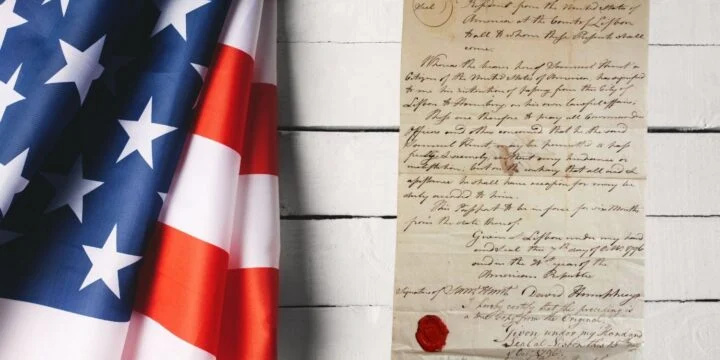 Seal
President from the United States of
America at the Court of Lisbon
to all to whom these Presents shall
come.
Whereas the bearer hereof Samuel Hunt a
Citizen of the United States of America has signified
to me his intention of passing from the City of
Lisbon to Hamburg on his own lawful affairs.
These are therefore to pray all Commanders
Officers and others concerned that he the said
Samuel Hunt may be permitted to pass
freely & securely without any hindrance or
molestation; but on the contrary that all aid &
assistance he shall have occasion for may be
duly afforded to him.
This Passport to be in force for six Months
from the date thereof.
Given at Lisbon under my hand
and seal this day of Oct. 1796
and in the 21st year of the
American Republic
Signature of David Humphreys
I hereby certify that the preceding is
a true Copy from the Original
Given under my Hand and
Seal at Lisbon this